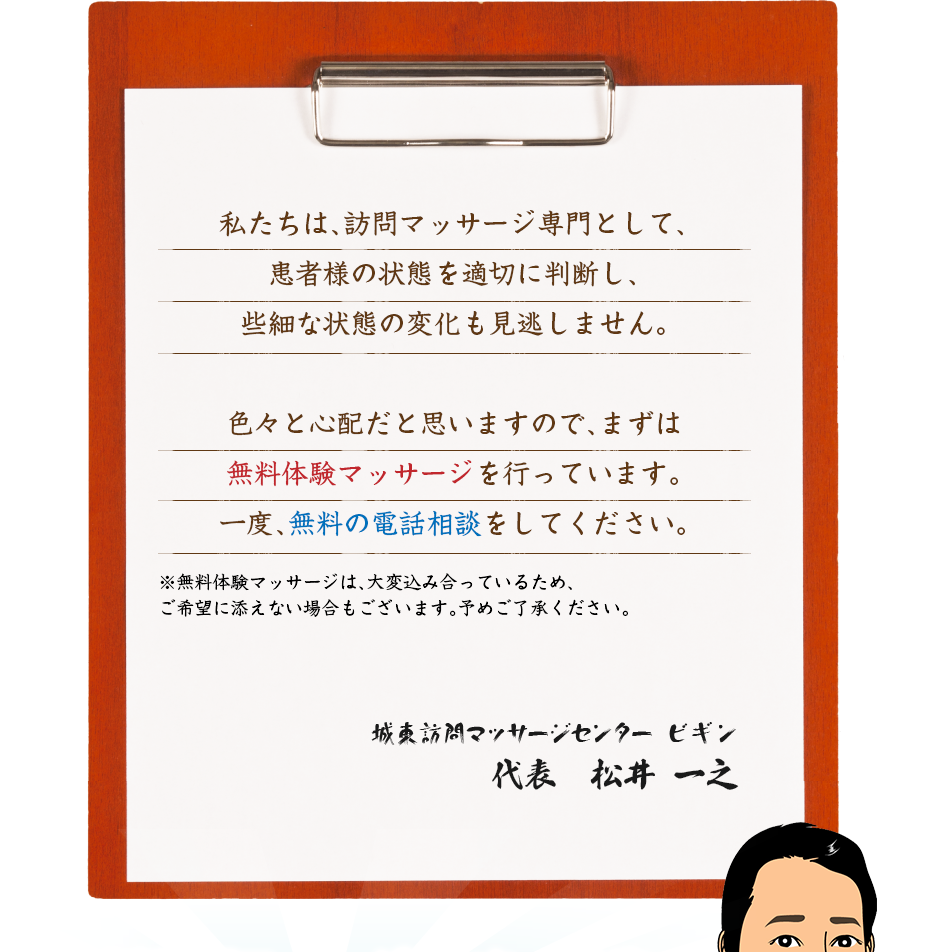 私たちは、訪問マッサージ専門として、
患者様の状態を適切に判断し、
些細な状態の変化も見逃しません。
色々と心配だと思いますので、まずは
無料体験マッサージを行っています。
一度、無料の電話相談をしてください。
※無料体験マッサージは、大変込み合っているため、
ご希望に添えない場合もございます。予めご了承ください。
城東訪問マッサージセンター ビギン
代表　松井 一之